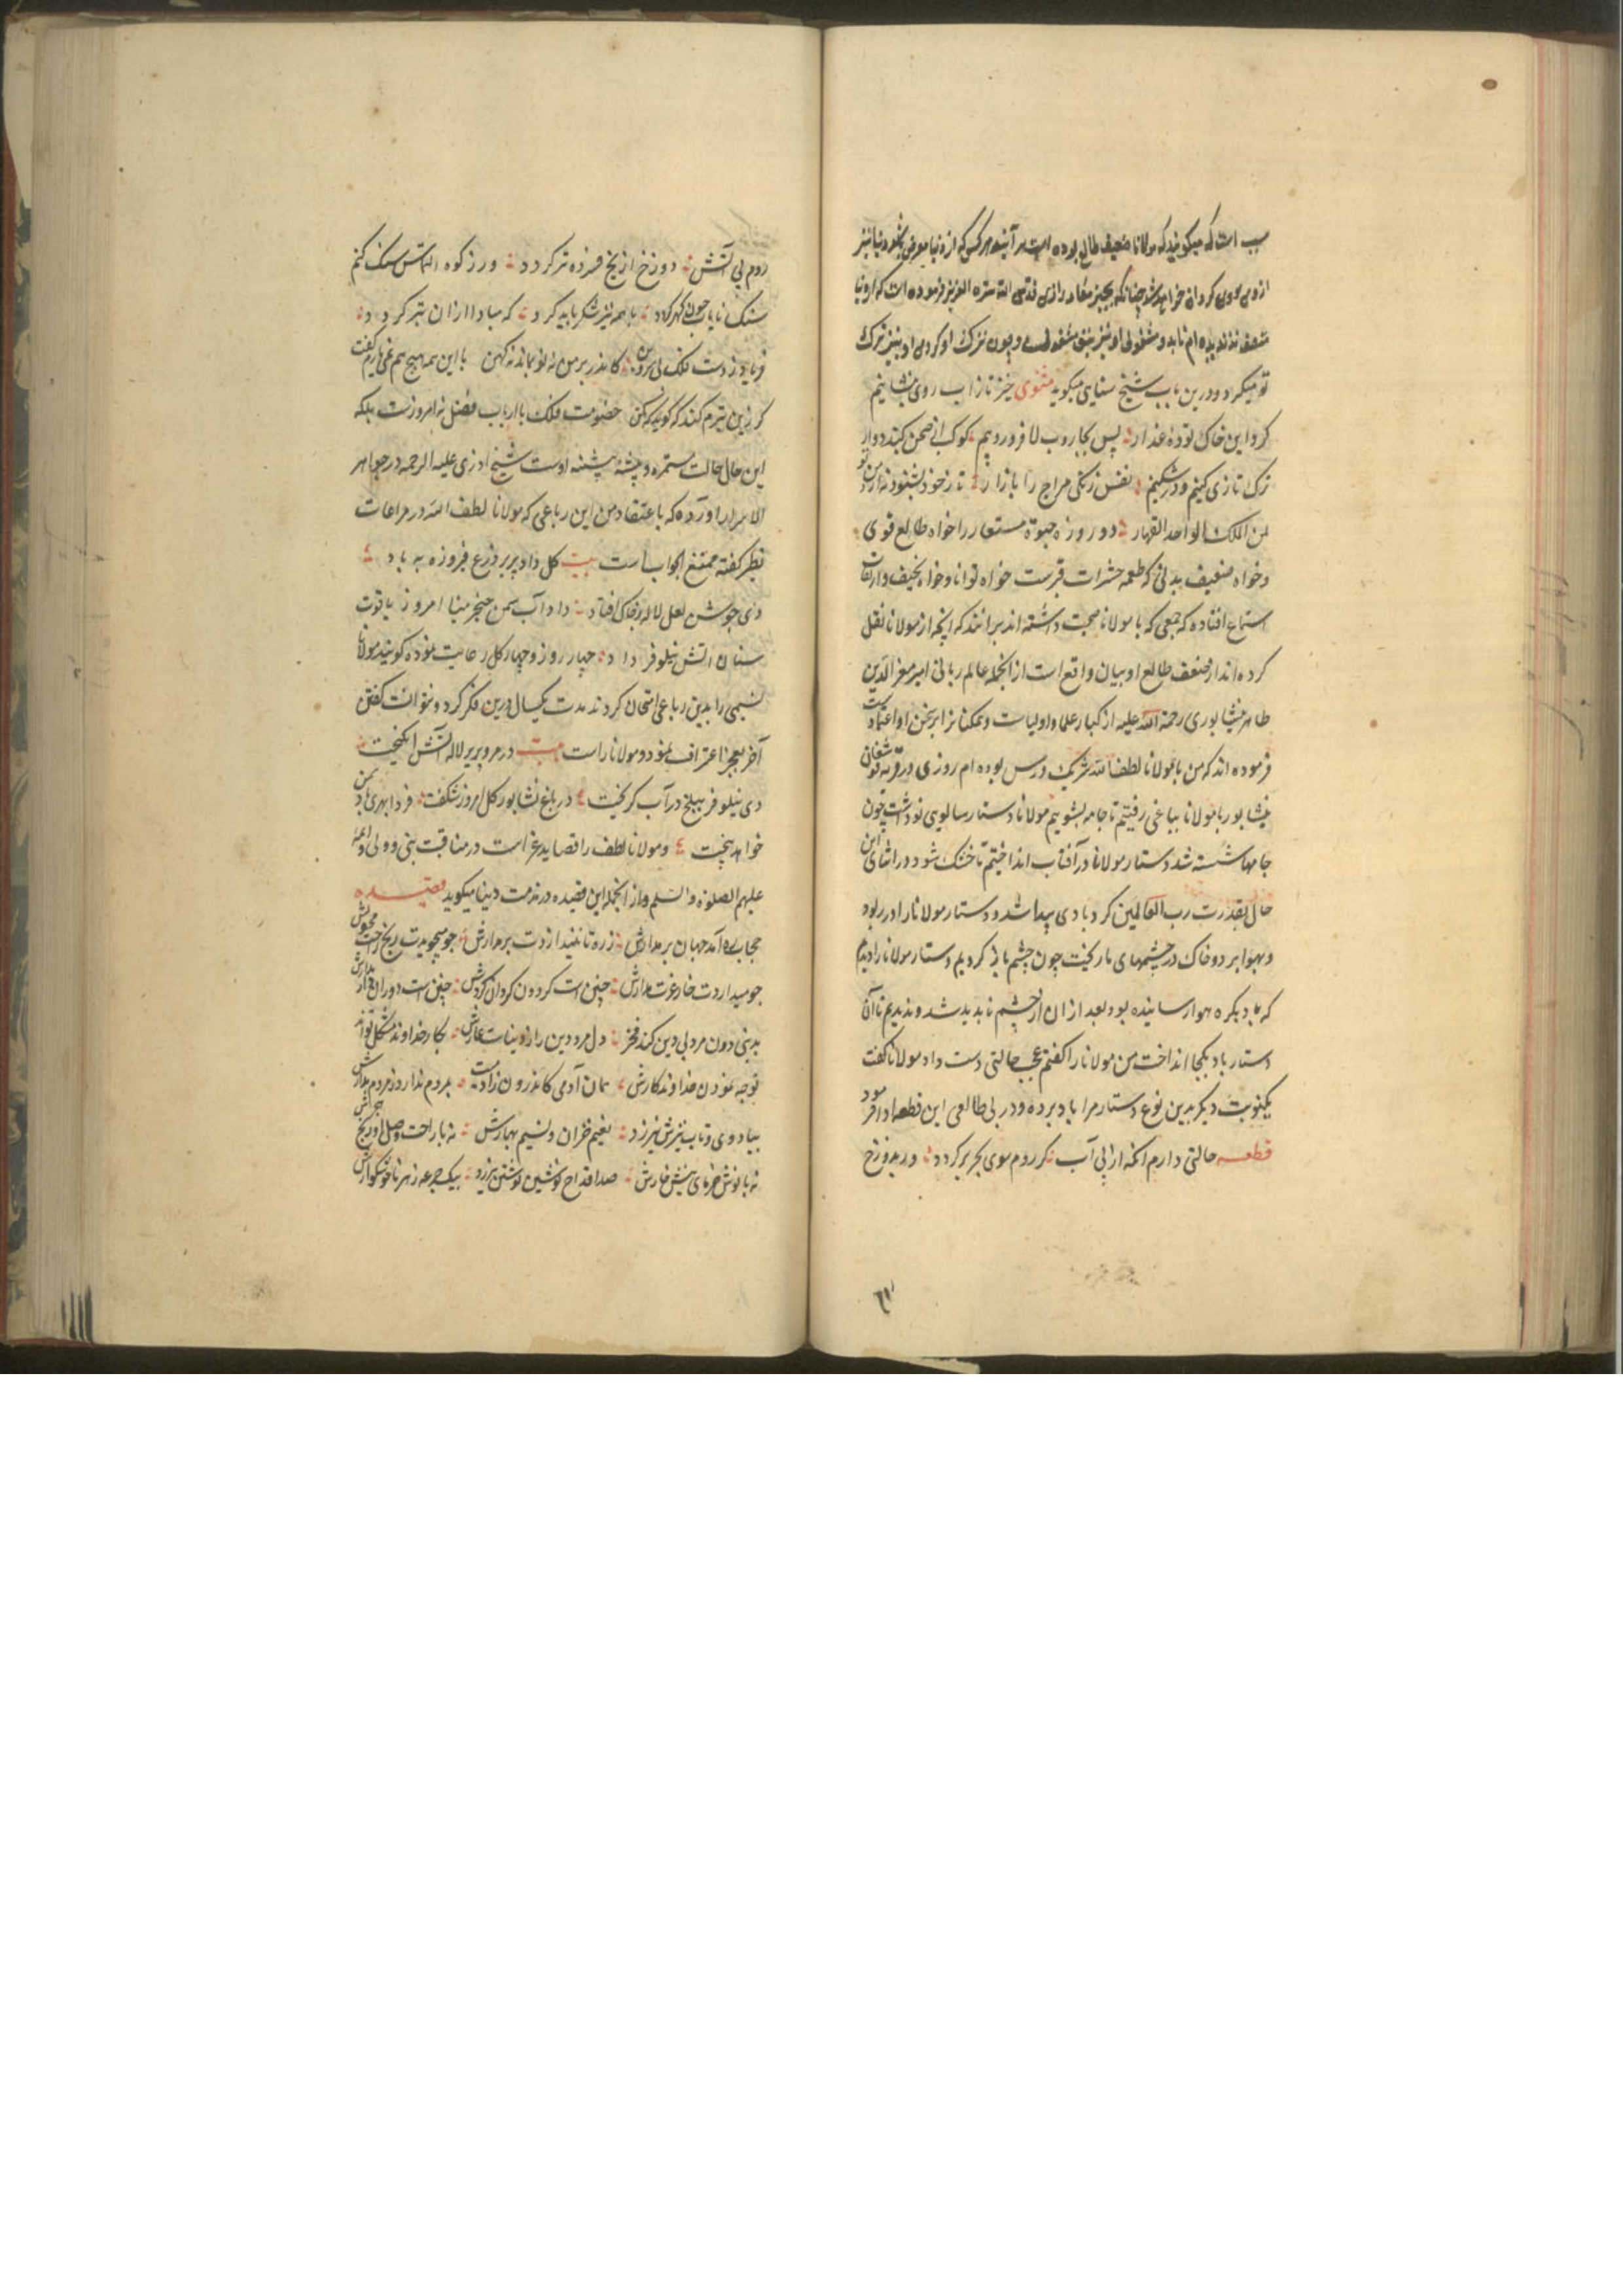 سبب است که میکویند که مولانا ضعیف طالع بوده است هر آینه هر کسی که از دنیا معرض بخود دنیا نیز
ازوی رو کردان خواهد شد چنانکه یحیی معاد رازی قدس الله سره العزیز فرموده است که از دنیا
شعف نندیده ام تا بدو مشغولی او نیز بتو مشغولست و چون ترک او کردی او نیز ترک
تو میکرد و درین باب شیخ سنایی میکوید مثنوی خیز تا زاب روی بنشانیم
کرد این خاک توده غدار پس بجاروب لا فرو روبیم کوکب از صحن کنبد دوار
ترک تازی کنیم و در شکنیم نفس زنکی مزاج را بازار تا ز خود بشنود نه از من و تو
لمن الملک الواحد القهار دو روزه حیوة مستعار را خواه طالع قوی
و خواه ضعیف بدنی که طعمه حشرات قبرست خواه توانا و خواه نحیف و از ثقات
استماع افتاده که جمعی که با مولانا صحبت داشته اند برانند که انچه از مولانا نقل
کرده اند از ضعف طالع او بیان واقع است از انجمله عالم ربانی امیر معز الدین
طاهر نیشابوری رحمة الله علیه از کبار علما و اولیاست و همکنانرا بر سخن او اعتمادست
فرموده اند که من با مولانا لطف الله شریک درس بوده ام روزی در قریه
نیشابور با مولانا بباغی رفتیم تا جامه بشوییم مولانا دستار سالویی نو داشت چون
جامها شسته شد دستار مولانا در آفتاب انداختیم تا خشک شود در اثنای این
حال بقدرت رب العالمین کردبادی پیدا شد و دستار مولانا را در ربود
و بهوا برد و خاک در چشمهای ما ریخت چون چشم باز کردیم دستار مولانا را دیدیم
که باد بکره هوا رسانیده بود بعد از ان از چشم ناپدید شد و ندیدیم تا آن
دستار باد بکجا انداخت من مولانا را کفتم عجب حالتی دست داد مولانا کفت
یکنوبت دیکر بدین نوع دستار مرا باد برده و در بی طالعی این قطعه ادا فرمود
قطعه حالتی دارم انکه از پی آب کر روم سوی بحر بر کردد ور بدوزخ
روم پی آتش دوزخ از یخ فسرده تر کردد ور ز کوه التماس سنک کنم
سنک نایاب چون کهر کردد با همه نیز شکر باید کرد که مبادا ازان بتر کردد
فریاد ز دست فلک بی سر و بن کاندر بر من نه نو بماند نه کهن با این همه هیچ هم نمی یارم کفت
کر زین بترم کند که کوید که مکن خصومت فلک با ارباب فضل نه امروزست بلکه
این حال حالت مستمره و پیشه پیشینه اوست شیخ اذری علیه الرحمه در جواهر
الاسرار آورده که باعتقاد من این رباعی که مولانا لطف الله در مراعات
نظیر کفته ممتنع الجواب است بیت کل داد پریر درع فیروزه به باد
دی جوشن لعل لاله بر خاک افتاد داد آب سمن خنجر مینا امروز یاقوت
سنان آتش نیلوفر داد چهار روز و چهار کل رعایت نموده کویند مولانا
نسیمی را بدین رباعی امتحان کردند مدت یکسال درین فکر کرد و نتوانست کفتن
آخر بعجز اعتراف نمود و مولانا راست بیت در مرو پریر لاله آتش انکیخت
دی نیلوفر ببلخ در آب کریخت در باغ نشابور کل امروز شکفت فردا بهری باد سمن
خواهد بیخت و مولانا لطف را قصاید غراست در مناقب نبی و ولی و ائمه
علیهم الصلوة والسلم و از انجمله این قصیده در مذمت دنیا میکوید قصیده
حجاب ره آمد جهان بر مدارش زره تا نیندازدت بر مدارش چو میجویدت رنج راحت مجویش
چو میداردت خار عزت مدارش چنین است کردون کردان کردش چنین است دوران مدارش
بدنیی دون مرد بی دین کند فخر دل مرد دین را ز دنیاست عارش بکار خداوند مشکل تواند
توجه نمودن خداوند کارش همان آدمی کاندرون زادست بمردم ندارد ز مردم مدارش
بباد دی و تاب تیرش نیرزد نعیم خزان و نسیم بهارش نه با راحت وصل او رنج هجرش
نه با نوش خرمای نیش خارش صد اقداح نوشین نوشش نیرزد بیک جرعه زهر ناخوشکوارش